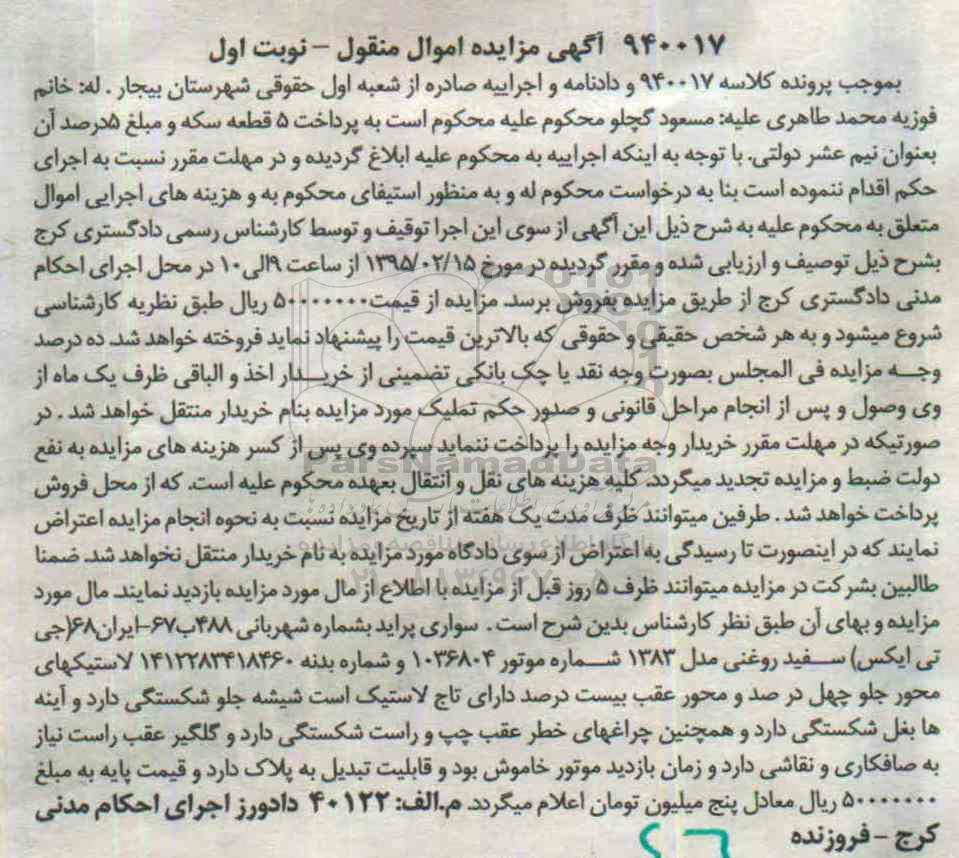 ۹۴۰۰۱۷ آگهی مزایده اموال منقول – نوبت اول
بموجب پرونده کلاسه ۹۴۰۰۱۷ و دادنامه و اجراییه صادره از شعبه اول حقوقی شهرستان بیجار . له: خانم
فوزیه محمد طاهری علیه: مسعود گچلو محکوم علیه محکوم است به پرداخت ۵ قطعه سکه و مبلغ ۵درصد آن
بعنوان نیم عشر دولتی. با توجه به اینکه اجراییه به محکوم علیه ابلاغ گردیده و در مهلت مقرر نسبت به اجرای
حکم اقدام ننموده است بنا به درخواست محکوم له و به منظور استیفای محکوم به و هزینه های اجرایی اموال
متعلق به محکوم علیه به شرح ذیل این آگهی از سوی این اجرا توقیف و توسط کارشناس رسمی دادگستری کرج
بشرح ذیل توصیف و ارزیابی شده و مقرر گردیده در مورخ ۱۳۹۵/۰۲/۱۵ از ساعت ۹الی۱۰ در محل اجرای احکام
مدنی دادگستری کرج از طریق مزایده بفروش برسد. مزایده از قیمت۵۰۰۰۰۰۰۰ ریال طبق نظریه کارشناسی
شروع میشود و به هر شخص حقیقی و حقوقی که بالاترین قیمت را پیشنهاد نماید فروخته خواهد شد. ده درصد
وجه مزایده فی المجلس بصورت وجه نقد یا چک بانکی تضمینی از خریدار اخذ و الباقی ظرف یک ماه از
وی وصول و پس از انجام مراحل قانونی و صدور حکم تملیک مورد مزایده بنام خریدار منتقل خواهد شد . در
صورتیکه در مهلت مقرر خریدار وجه مزایده را پرداخت ننماید سپرده وی پس از کسر هزینه های مزایده به نفع
دولت ضبط و مزایده تجدید میگردد. کلیه هزینه های نقل و انتقال بعهده محکوم علیه است. که از محل فروش
پرداخت خواهد شد . طرفین میتوانند ظرف مدت یک هفته از تاریخ مزایده نسبت به نحوه انجام مزایده اعتراض
نمایند که در اینصورت تا رسیدگی به اعتراض از سوی دادگاه مورد مزایده به نام خریدار منتقل نخواهد شد. ضمنا
طالبین بشرکت در مزایده میتوانند ظرف ۵ روز قبل از مزایده با اطلاع از مال مورد مزایده بازدید نمایند. مال مورد
مزایده و بهای آن طبق نظر کارشناس بدین شرح است . سواری پراید بشماره شهربانی ۴۸۸ب۶۷-ایران۶۸(جی
تی ایکس) سفید روغنی مدل ۱۳۸۳ شماره موتور ۱۰۳۶۸۰۴ و شماره بدنه ۱۴۱۲۲۸۳۴۱۸۴۶۰ لاستیکهای
محور جلو چهل در صد و محور عقب بیست درصد دارای تاج لاستیک است شیشه جلو شکستگی دارد و آینه
ها بغل شکستگی دارد و همچنین چراغهای خطر عقب چپ و راست شکستگی دارد و گلگیر عقب راست نیاز
به صافکاری و نقاشی دارد و زمان بازدید موتور خاموش بود و قابلیت تبدیل به پلاک دارد و قیمت پایه به مبلغ
۵۰۰۰۰۰۰۰ ریال معادل پنج میلیون تومان اعلام میگردد. م.الف: ۴۰۱۲۲ دادورز اجرای احکام مدنی
کرج – فروزنده
ParsNamadData